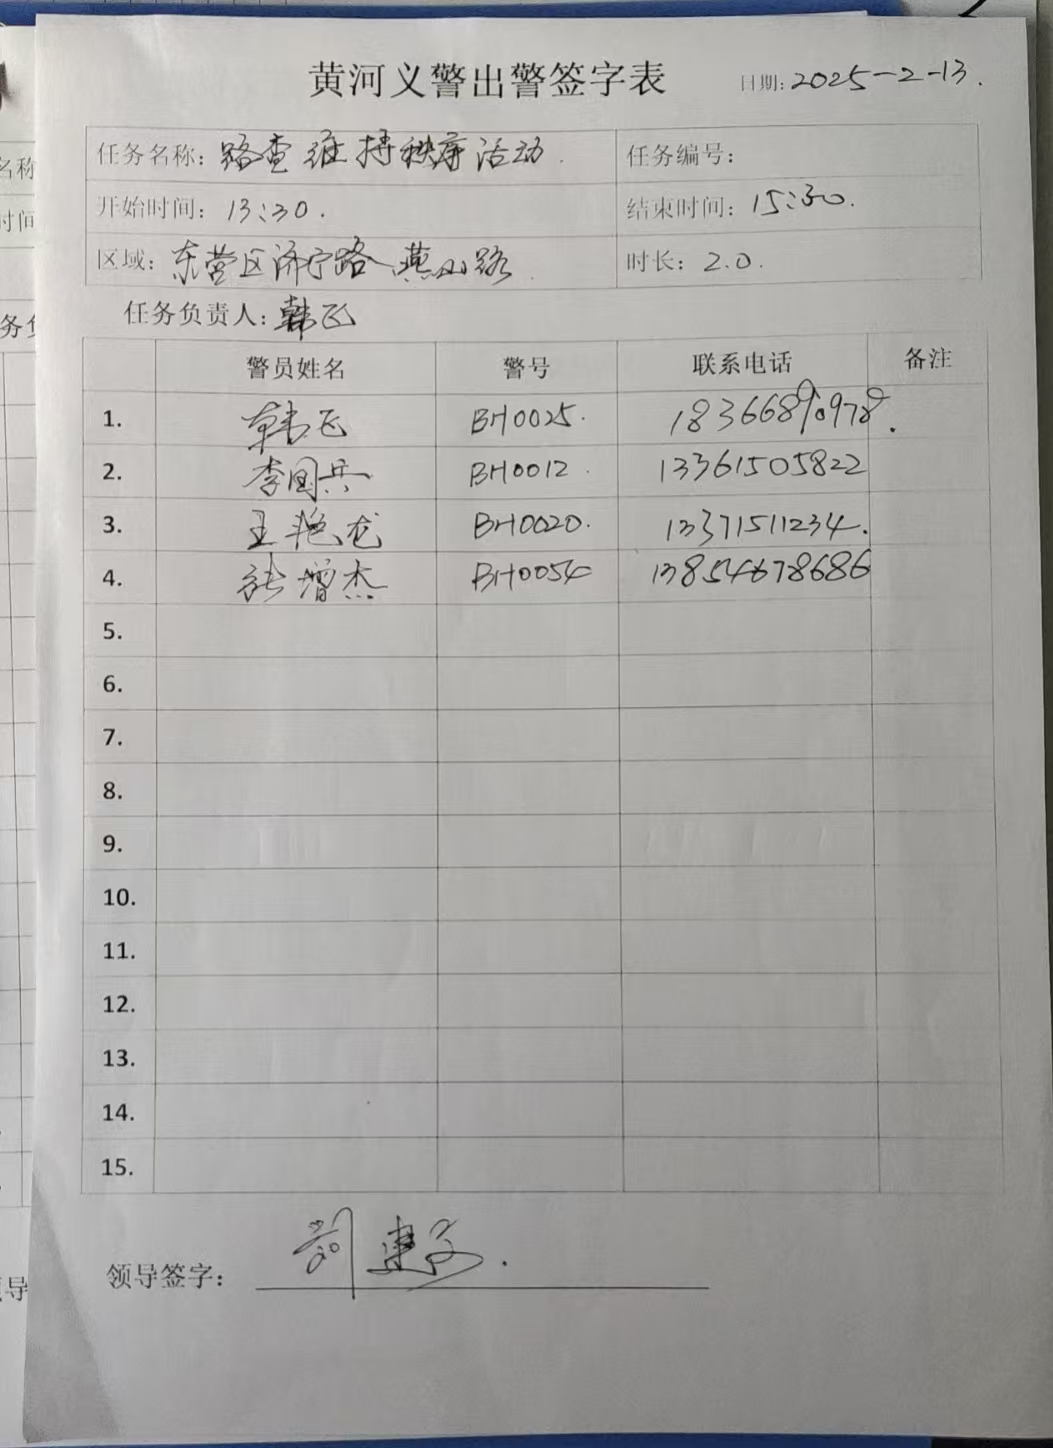 黄河义警出警签字表 日期:2025-2-13.
任务名称: 路查维持秩序活动. 任务编号:
开始时间: 13:30. 结束时间: 15:30.
区域: 东营区济宁路燕山路. 时长: 2.0.
任务负责人: 韩飞
警员姓名 警号 联系电话 备注
1. 韩飞 BH0025. 18366890978.
2. 李国兵 BH0012. 13361505822
3. 王艳龙 BH0020. 13371511234.
4. 张增杰 BH0054 13854678686
5.
6.
7.
8.
9.
10.
11.
12.
13.
14.
15.
领导签字: